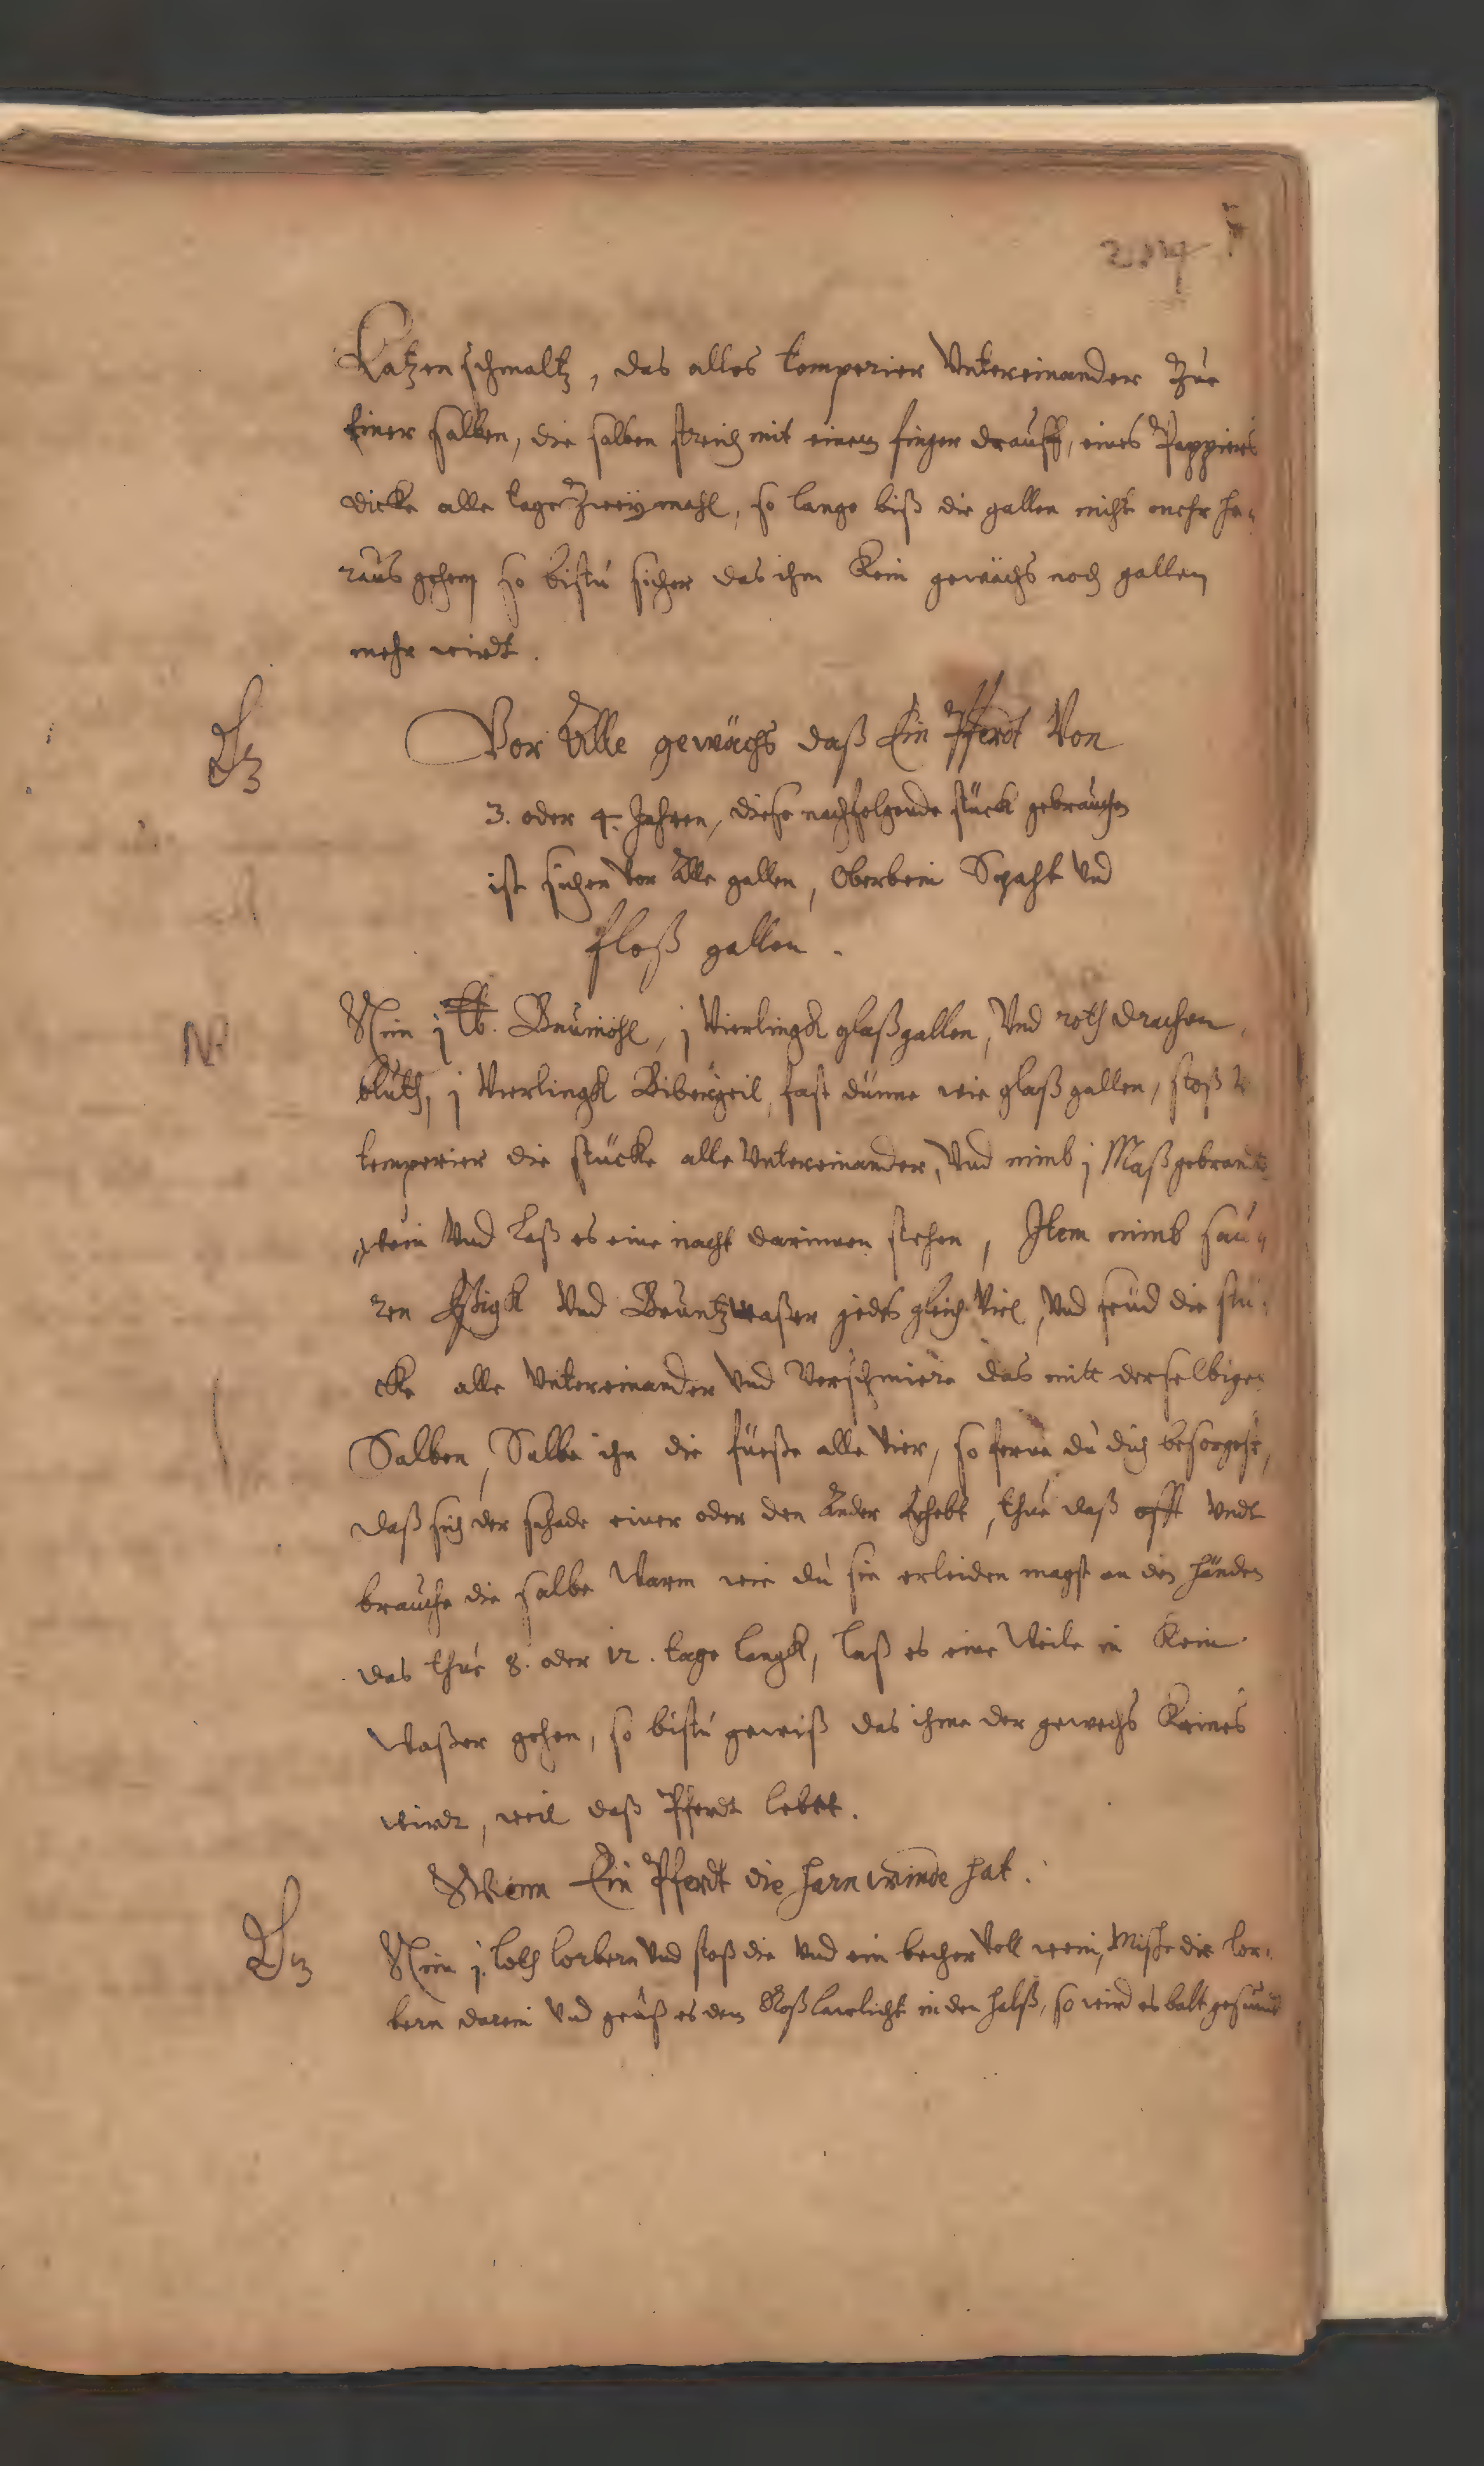 Katzen schmaltz, das alles temperier Untereinander Zue
Einer salben, die salben streich mit einem finger drauff, eines Pappiers
dicke alle tage Zweÿmahl, so lange biß die gallen nicht mehr he-
raus gehen so bistu sicher das ihm Kein gewächs noch gallen
mehr wirdt.
Vor Alle gewächs daß Ein Pferdt Von
3. oder 4. Jahren, diese nachfolgende stück gebrauchen
ist sicher Vor Alle gallen, Oberbein Spaht Und
floß gallen.
NB
Nim j lb. Baumöhl, j Vierlingk glaßgallen, Und roth drachen
bluth, j Vierlingk Bibergeil, fast dünne wie glaßgallen, stoß
temperier die stücke alle Untereinander, Und nimb j Maß gebrandt
wein Und Laß es eine nacht darinnen stehen, Item nimb sau-
ren Eßigk Und Bruntzwaßer jedes gleich Viel, Und seud die stü-
cke alle Untereinander Und Verschmiere das mitt derselbigen
Salben, Salbe ihn die füeße alle Vier, so ferne du dich besorgest,
daß sich der schade einer oder den Ander Erhebt, thue daß offt Undt
brauche die salbe Warm wie du sie erleiden magst an den händen
das thue 8. oder 12. tage langk, laß es eine Weile in Kein
Waßer gehen, so bistu gewiß das ihme der gewechs Keines
wirdt, weil daß Pferdt lebet.
Wenn Ein Pferdt die harnwinde hat.
Nim j. loth lorbern Und stoß die Und ein becher Voll wein, Mische die lor-
bern darein Und geüß es dem Roß lawlicht in den halß, so wird es balt gesundt